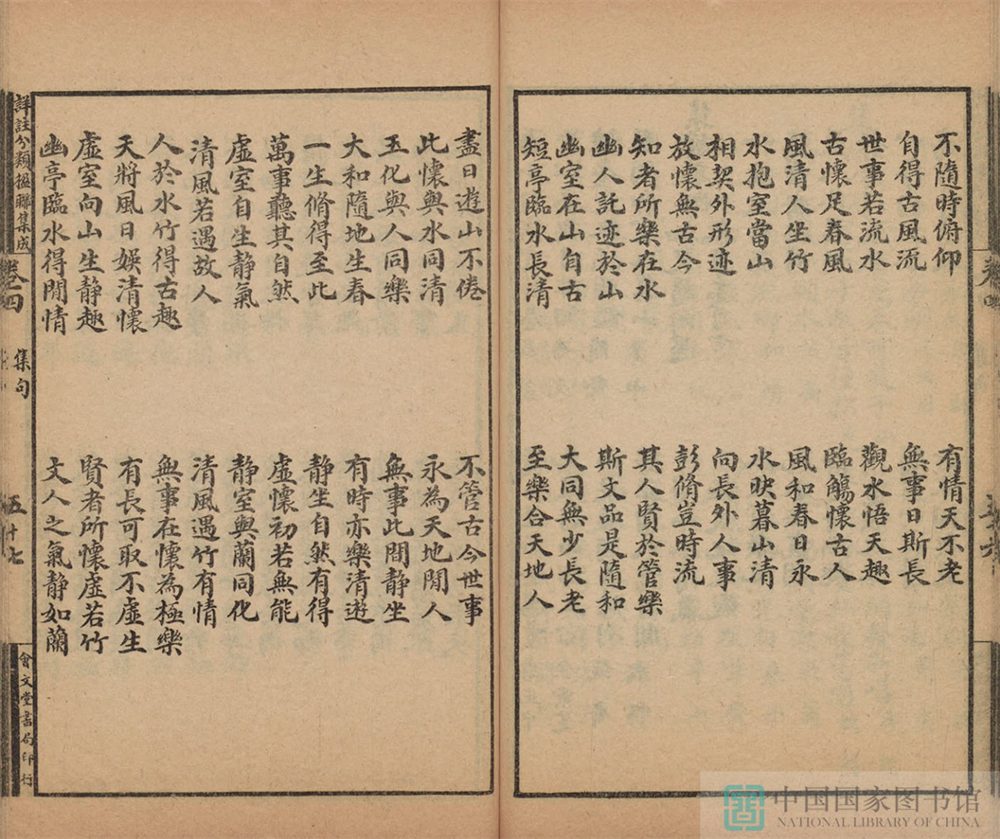 不隨時俯仰
有情天不老
自得古風流
無事日斯長
世事若流水
觀水悟天趣
古懷足春風
臨觴懷古人
風清人坐竹
風和春日永
水抱室當山
水映暮山清
相契外形迹
向長外人事
放懷無古今
彭脩豈時流
知者所樂在水
其人賢於管樂
幽人託迹於山
斯文品是隨和
幽室在山自古
大同無少長老
短亭臨水長清
至樂合天地人
盡日遊山不倦
不管古今世事
此懷與水同清
永為天地閒人
玉化與人同樂
無事此間靜坐
大和隨地生春
有時亦樂清遊
一生脩得至此
靜坐自然有得
萬事聽其自然
虛懷初若無能
虛室自生靜氣
靜室與蘭同化
清風若遇故人
清風遇竹有情
人於水竹得古趣
無事在懷為極樂
天將風日娛清懷
有長可取不虛生
虛室向山生靜趣
賢者所懷虛若竹
幽亭臨水得閒情
文人之氣靜如蘭
詳註分類楹聯集成
卷四
集句
五十七
會文堂書局印行
中国国家图书馆
NATIONAL LIBRARY OF CHINA